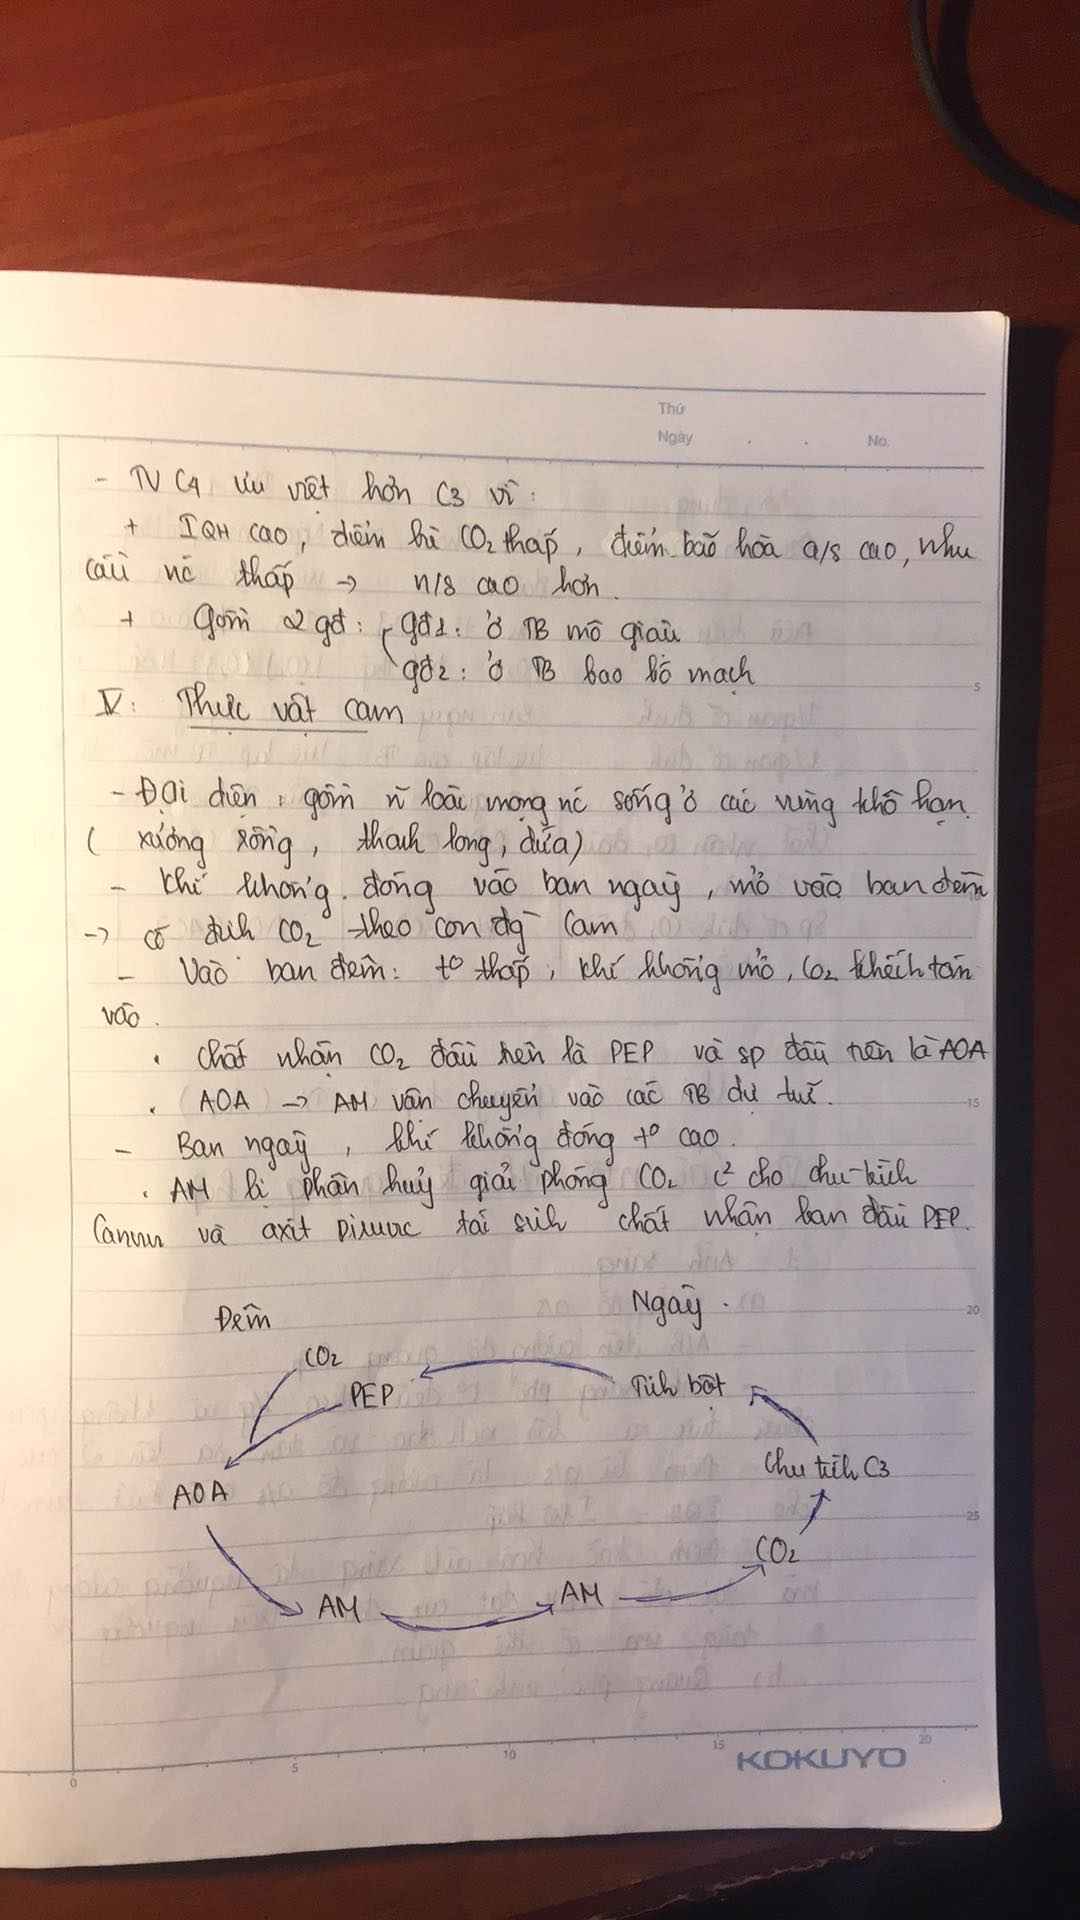 Thứ
Ngày . . No.
- TV C4 ưu việt hơn C3 vì:
+ IQH cao, điểm bù CO2 thấp, điểm bão hòa a/s cao, nhu
cầu nc thấp -> n/s cao hơn.
+ Gồm 2 gđ: gđ1: ở TB mô giậu
gđ2: ở TB bao bó mạch
V: Thực vật cam
- Đại diện: gồm n loài mọng nc sống ở các vùng khô hạn.
( xương rồng, thanh long, dứa)
- Khí khổng đóng vào ban ngày, mở vào ban đêm
-> cố định CO2 theo con đg Cam
- Vào ban đêm: t° thấp, khí khổng mở, CO2 khếch tán
vào.
. Chất nhận CO2 đầu tiên là PEP và sp đầu tiên là AOA
. AOA -> AM vận chuyển vào các TB dự trữ.
- Ban ngày, khí khổng đóng t° cao.
. AM bị phân huỷ giải phóng CO2 c² cho chu trình
Canvin và axit piruvic tái sinh chất nhận ban đầu PEP.
Đêm Ngày.
CO2
PEP Tinh bột
AOA Chu trình C3
CO2
AM AM
KOKUYO
0 5 10 15 20
5
15
20
25